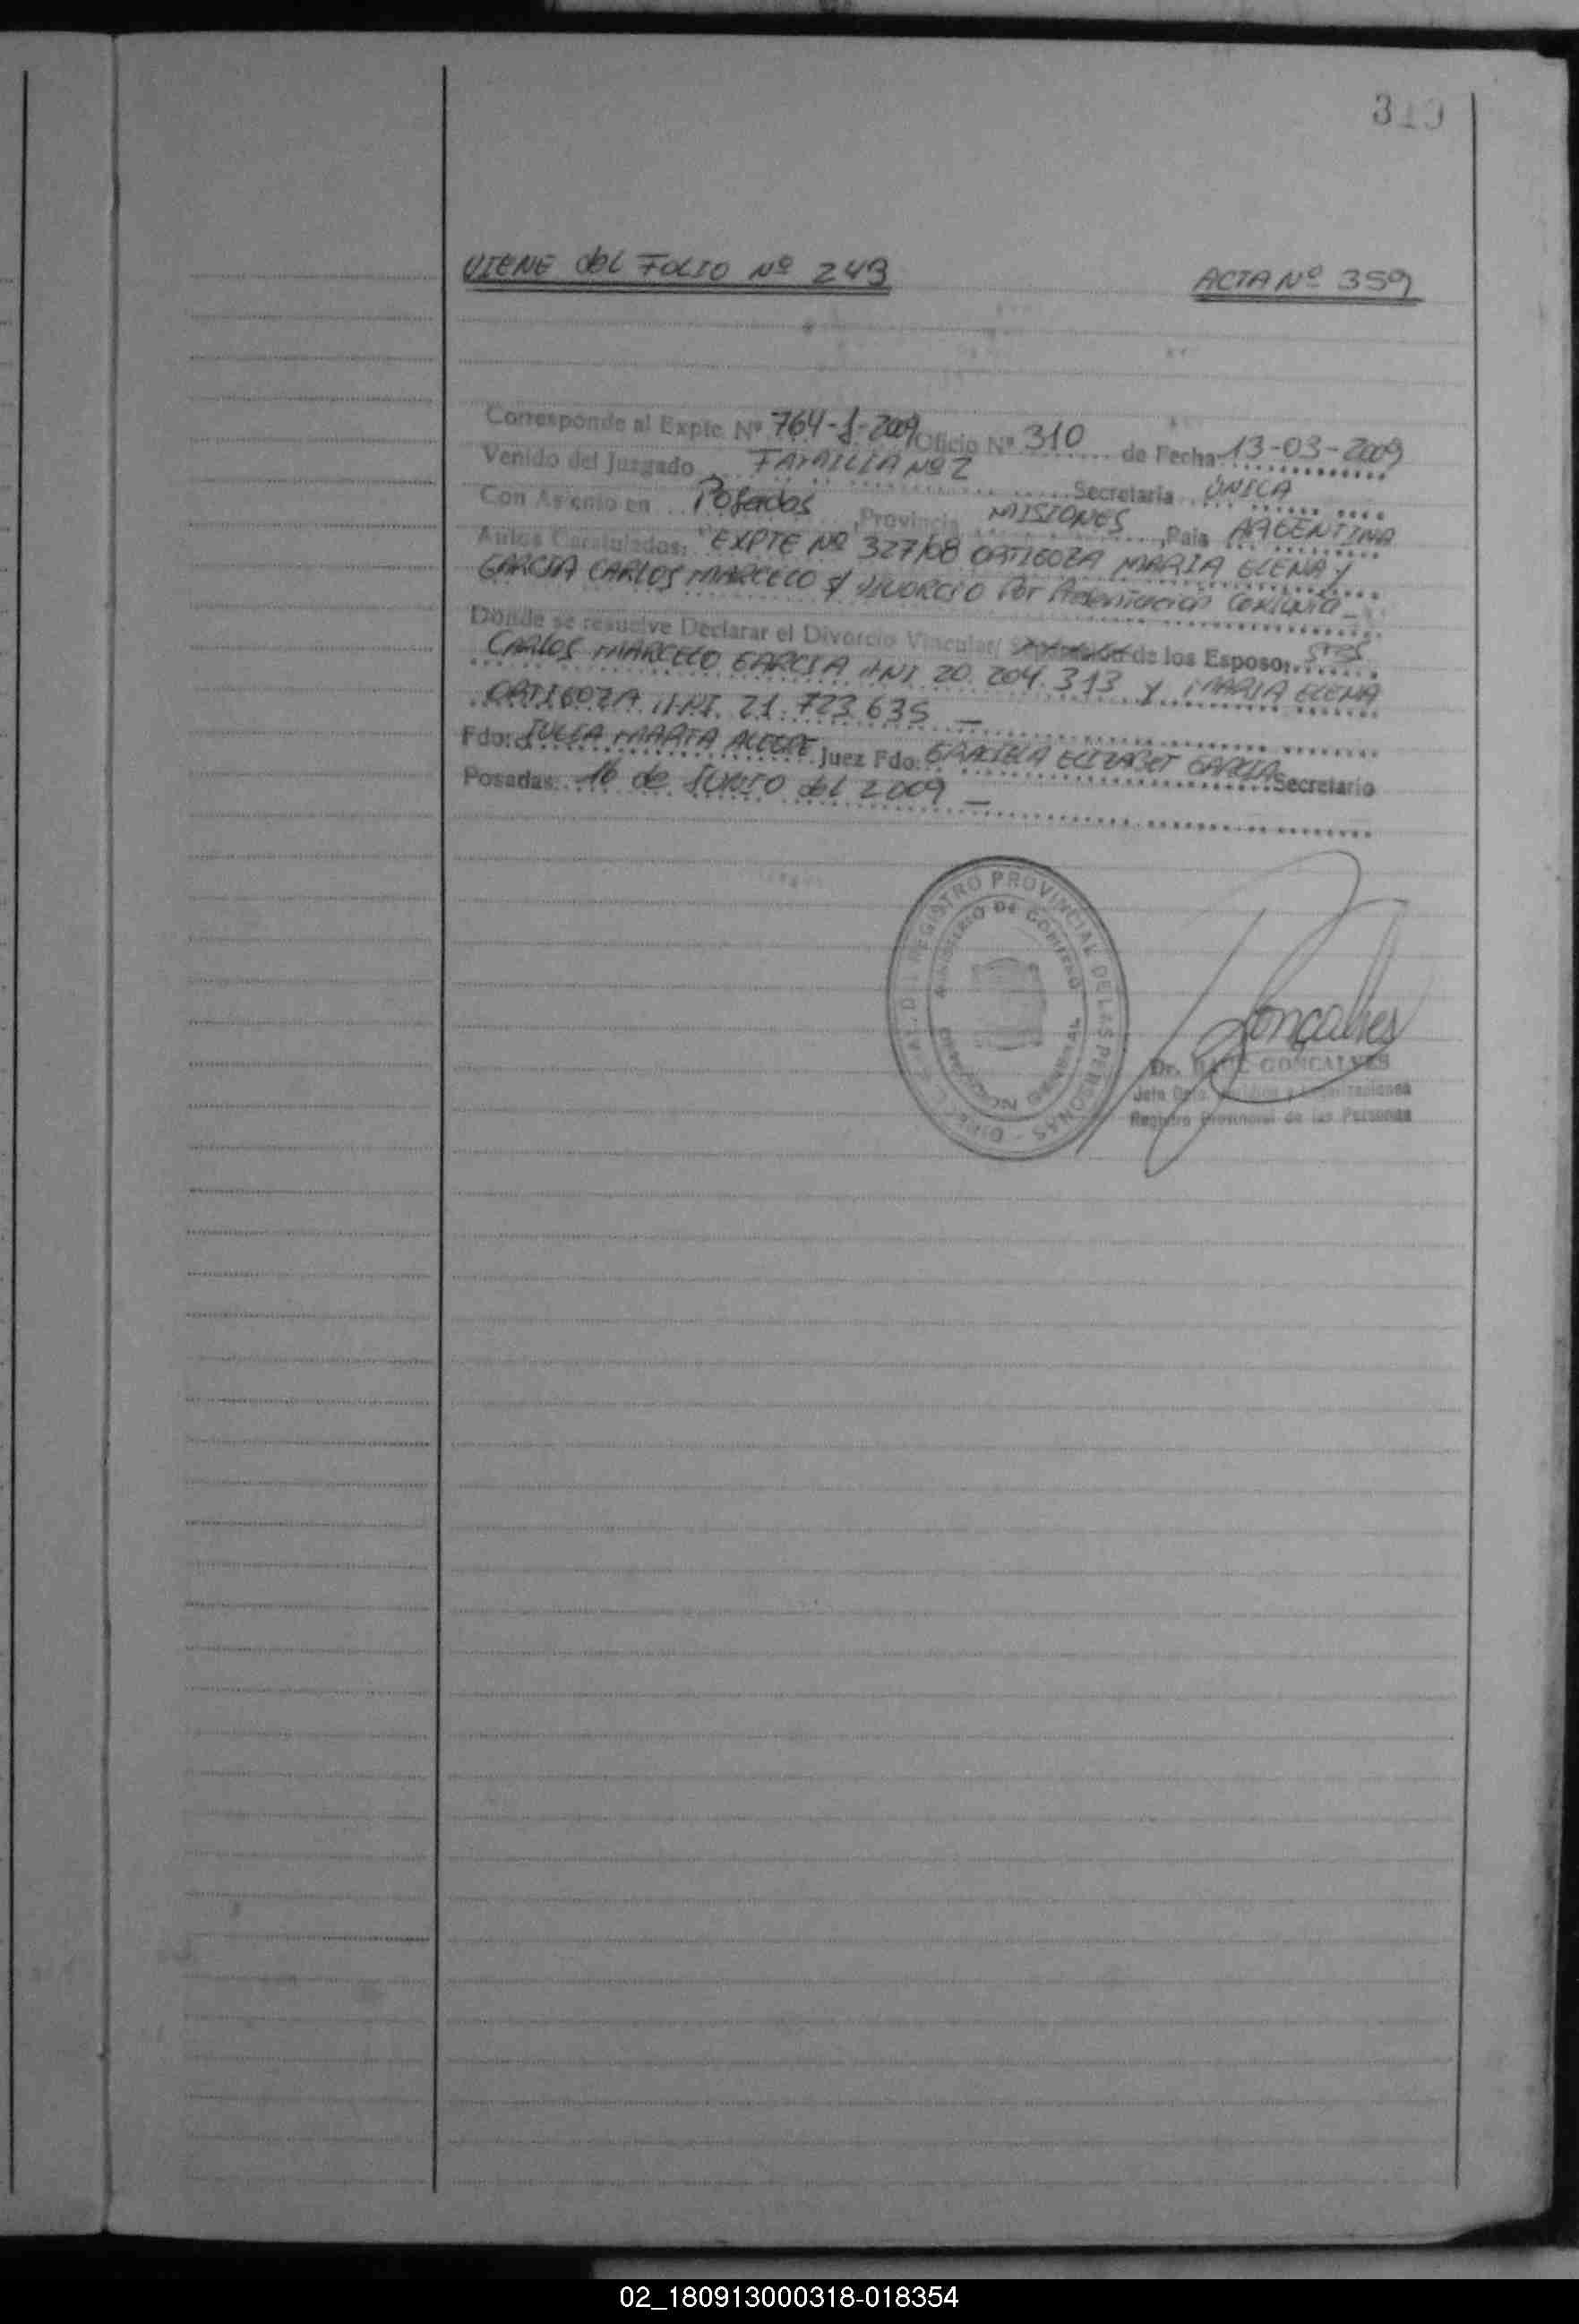 310
VIENE del FOLIO Nº 249
ACTA Nº 359
Corresponde al Expte. Nº 764-J-2009 Oficio Nº 310 de Fecha 13-03-2009
Venido del Juzgado FAMILIA Nº 2 Secretaria ÚNICA
Con Asiento en Posadas, Provincia MISIONES, Pais ARGENTINA
Autos Caratulados: "EXPTE Nº 327/08 ORTIGOZA MARIA ELENA Y
GARCIA CARLOS MARCELO S/ DIVORCIO Por Presentación Conjunta_
Donde se resuelve Declarar el Divorcio Vincular/ de los Esposos: Sres
CARLOS MARCELO GARCIA DNI 20.204.313 Y MARIA ELENA
ORTIGOZA DNI. 21.723.635 _
Fdo: JULIA MARTA ALEGRE Juez Fdo: GRACIELA ELIZABET GARCIA Secretario
Posadas: 16 de JUNIO del 2009 _
REGISTRO PROVINCIAL DE LAS PERSONAS
MINISTERIO DE GOBIERNO
Gonçalves
Dr. GONCALVES
Registro Provincial de las Personas
02_180913000318-018354